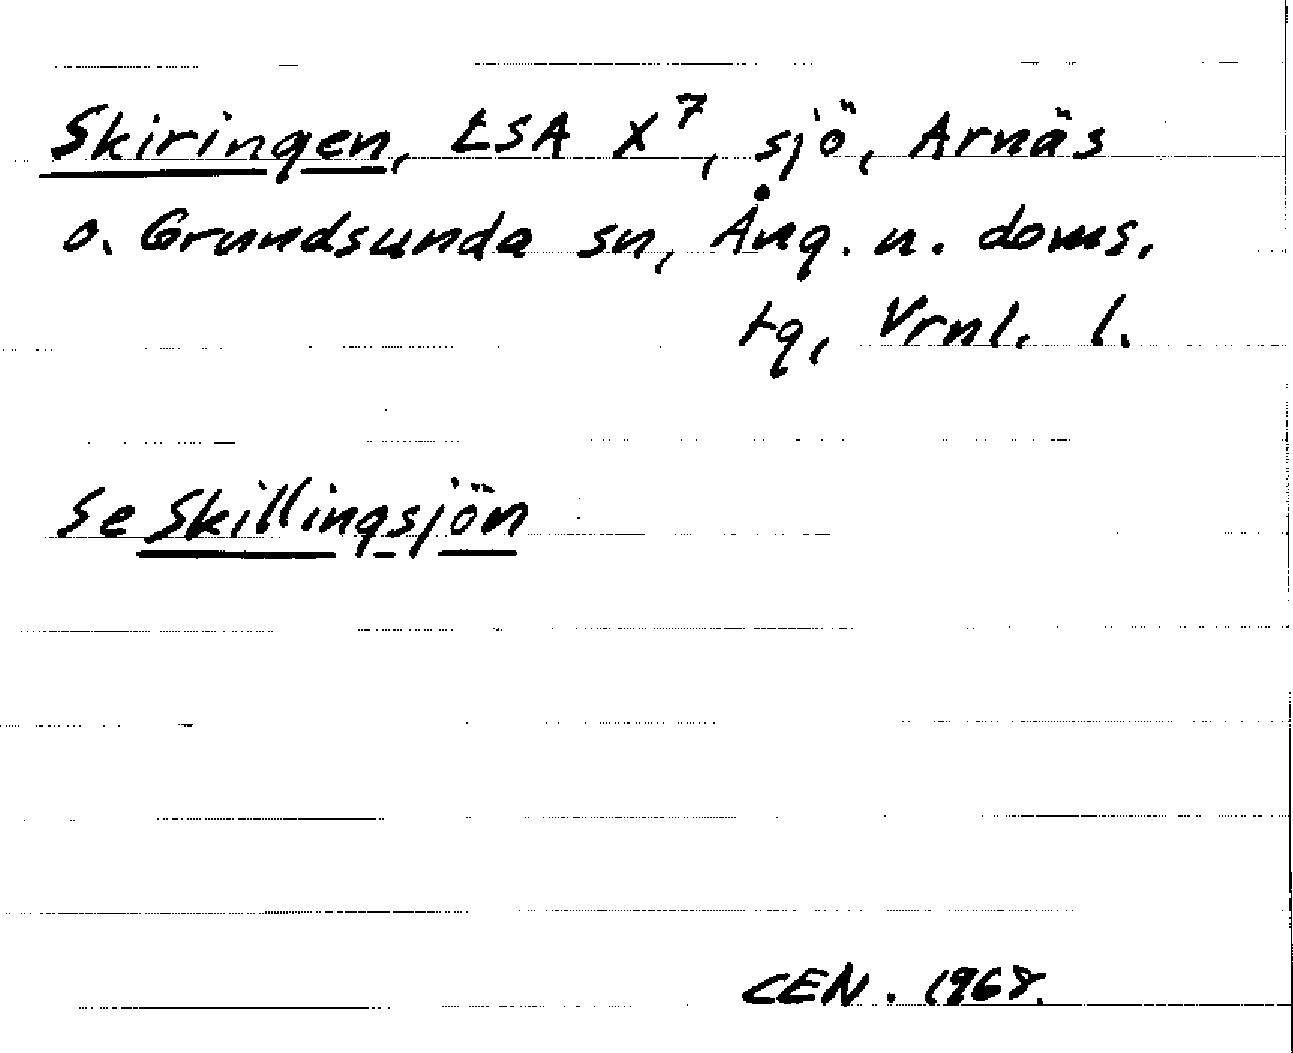 Skiringen, LSA X⁷, sjö, Arnäs
o. Grundsunda sn, Ång. n. doms.
tg, Vrnl. l.
Se Skillingsjön
CEN. 1968.